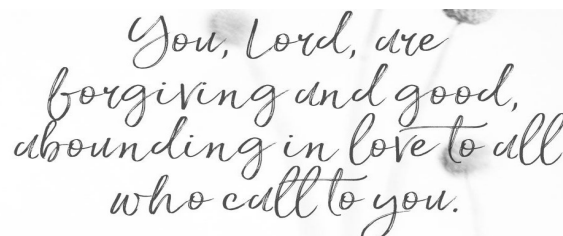 You, Lord, are
forgiving and good,
abounding in love to all
who call to you.